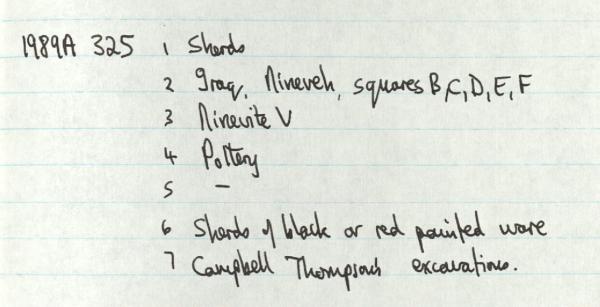 1989A 325 1 Sherds
2 Iraq, Nineveh, squares B,C,D,E,F
3 Ninevite V
4 Pottery
5 –
6 Sherds of black or red painted ware
7 Campbell Thompson excavations.